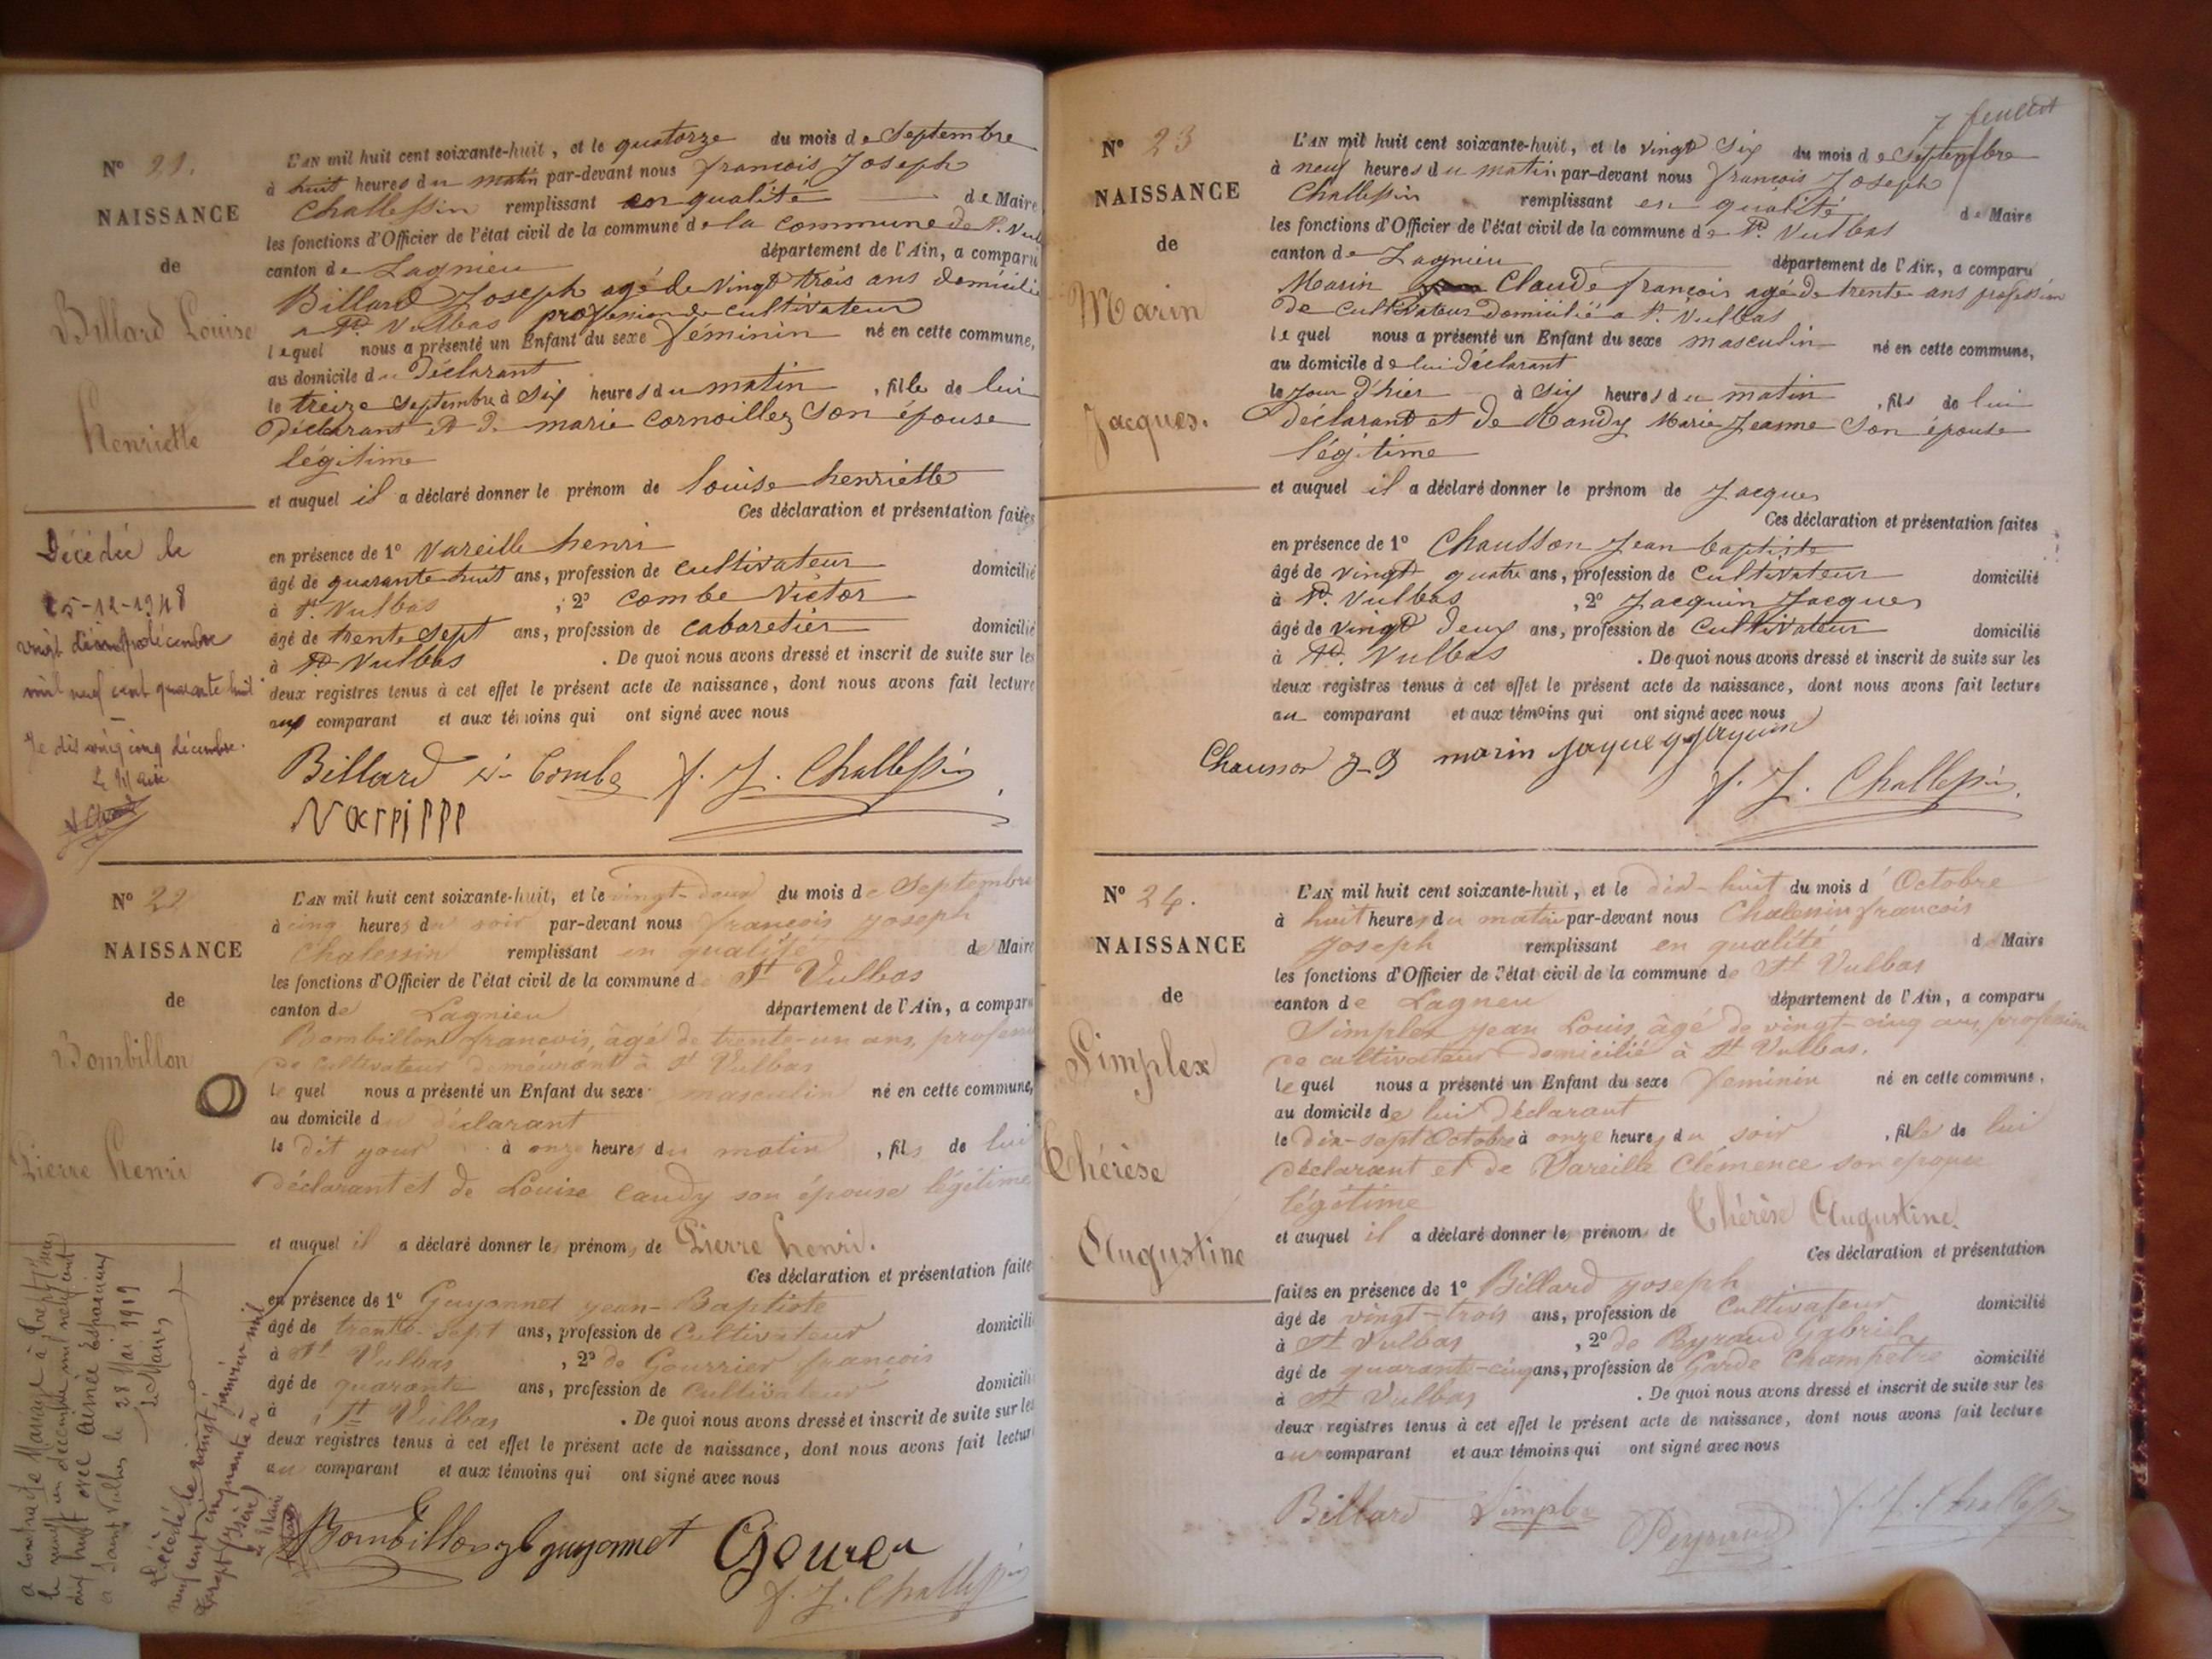 N° 21.
NAISSANCE
de
Billard Louise
Henriette
L'AN mil huit cent soixante-huit, et le quatorze du mois de Septembre
à huit heures du matin par-devant nous françois Joseph
Challessin remplissant en qualité de Maire
les fonctions d'Officier de l'état civil de la commune de la commune de St. Vulb
canton de Lagnieu département de l'Ain, a comparu
Billard Joseph agé de vingt trois ans domicilié
a St. Vulbas profession de cultivateur
lequel nous a présenté un Enfant du sexe féminin né en cette commune,
au domicile du Déclarant
le treize Septembre à Six heures du matin, fille de lui
Déclarant et D. marie Cornoillez Son épouse
légitime
et auquel il a déclaré donner le prénom de Louise henriette
Ces déclaration et présentation faites
en présence de 1° Vareille henri
âgé de quarante huit ans, profession de cultivateur domicilié
à St. Vulbas, 2° Combe Victor
âgé de trente Sept ans, profession de cabaretier domicilié
à St. Vulbas. De quoi nous avons dressé et inscrit de suite sur les
deux registres tenus à cet effet le présent acte de naissance, dont nous avons fait lecture
au comparant et aux témoins qui ont signé avec nous
Billard Combe f. J. Challessin
Décédée le
25-12-1948
vingt décembre
mil neuf cent quarante huit
Je dis vingt cinq décembre.
Le Maire
N° 22
NAISSANCE
de
Bombillon
Pierre henri
L'AN mil huit cent soixante-huit, et le vingt-deux du mois de Septembre
à cinq heures du soir par-devant nous françois joseph
Chalessin remplissant en qualité de Maire
les fonctions d'Officier de l'état civil de la commune de St Vulbas
canton de Lagnieu département de l'Ain, a comparu
Bombillon françois, âgé de trente-un ans, profession
de cultivateur demeurant à St Vulbas
lequel nous a présenté un Enfant du sexe masculin né en cette commune,
au domicile du déclarant
le dit jour à onze heures du matin, fils de lui
Déclarant et de Louise Candy son épouse légitime
et auquel il a déclaré donner les prénoms de Pierre henri.
Ces déclaration et présentation faites
en présence de 1° Guyonnet jean-Baptiste
âgé de trente-sept ans, profession de Cultivateur domicilié
à St Vulbas, 2° de Gourrier françois
âgé de quarante ans, profession de Cultivateur domicilié
à St Vulbas. De quoi nous avons dressé et inscrit de suite sur les
deux registres tenus à cet effet le présent acte de naissance, dont nous avons fait lecture
au comparant et aux témoins qui ont signé avec nous
Bombillon guyonnet Gourer
f. J. Challessin
a contracté Mariage à
le neuf décembre mil neuf cent
dix huit avec Aimée
à Saint Vulbas le 28 Mai 1919
le Maire,
Décédé le vingt janvier mil
neuf cent cinquante à
(Isère)
le Maire
7 feuillet
N° 23
NAISSANCE
de
Marin
Jacques.
L'AN mil huit cent soixante-huit, et le vingt Six du mois de Septembre
à neuf heures du matin par-devant nous françois Joseph
Challessin remplissant en qualité de Maire
les fonctions d'Officier de l'état civil de la commune de St. Vulbas
canton de Lagnieu département de l'Ain, a comparu
Marin Claude françois agé de trente ans profession
de cultivateur Domicilié a St. Vulbas
lequel nous a présenté un Enfant du sexe masculin né en cette commune,
au domicile de lui déclarant
le Jour d'hier à Six heures du matin, fils de lui
Déclarant et de Randy Marie Jeanne Son épouse
légitime
et auquel il a déclaré donner le prénom de Jacques
Ces déclaration et présentation faites
en présence de 1° Chausson Jean baptiste
âgé de vingt quatre ans, profession de Cultivateur domicilié
à St. Vulbas, 2° Jacquin Jacques
âgé de vingt deux ans, profession de Cultivateur domicilié
à St. Vulbas. De quoi nous avons dressé et inscrit de suite sur les
deux registres tenus à cet effet le présent acte de naissance, dont nous avons fait lecture
au comparant et aux témoins qui ont signé avec nous
Chausson J-B marin
f. J. Challessin
N° 24.
NAISSANCE
de
Simplex
Thérèse
Augustine
L'AN mil huit cent soixante-huit, et le dix-huit du mois d'Octobre
à huit heures du matin par-devant nous Chalessin francois
Joseph remplissant en qualité de Maire
les fonctions d'Officier de l'état civil de la commune de St Vulbas
canton de Lagneu département de l'Ain, a comparu
Simplex jean Louis, âgé de vingt-cinq ans, profession
de cultivateur domicilié à St Vulbas.
lequel nous a présenté un Enfant du sexe féminin né en cette commune,
au domicile de lui déclarant
le dix-sept Octobre à onze heures du soir, fille de lui
Déclarant et de Vareille Clémence son épouse
légitime
et auquel il a déclaré donner les prénoms de Thérèse Augustine.
Ces déclaration et présentation
faites en présence de 1° Billard joseph
âgé de vingt-trois ans, profession de Cultivateur domicilié
à St Vulbas, 2° de Peyraud Gabriel
âgé de quarante-cinq ans, profession de Garde Champêtre domicilié
à St Vulbas. De quoi nous avons dressé et inscrit de suite sur les
deux registres tenus à cet effet le présent acte de naissance, dont nous avons fait lecture
au comparant et aux témoins qui ont signé avec nous
Billard Simplex Peyraud f. J. Challessin